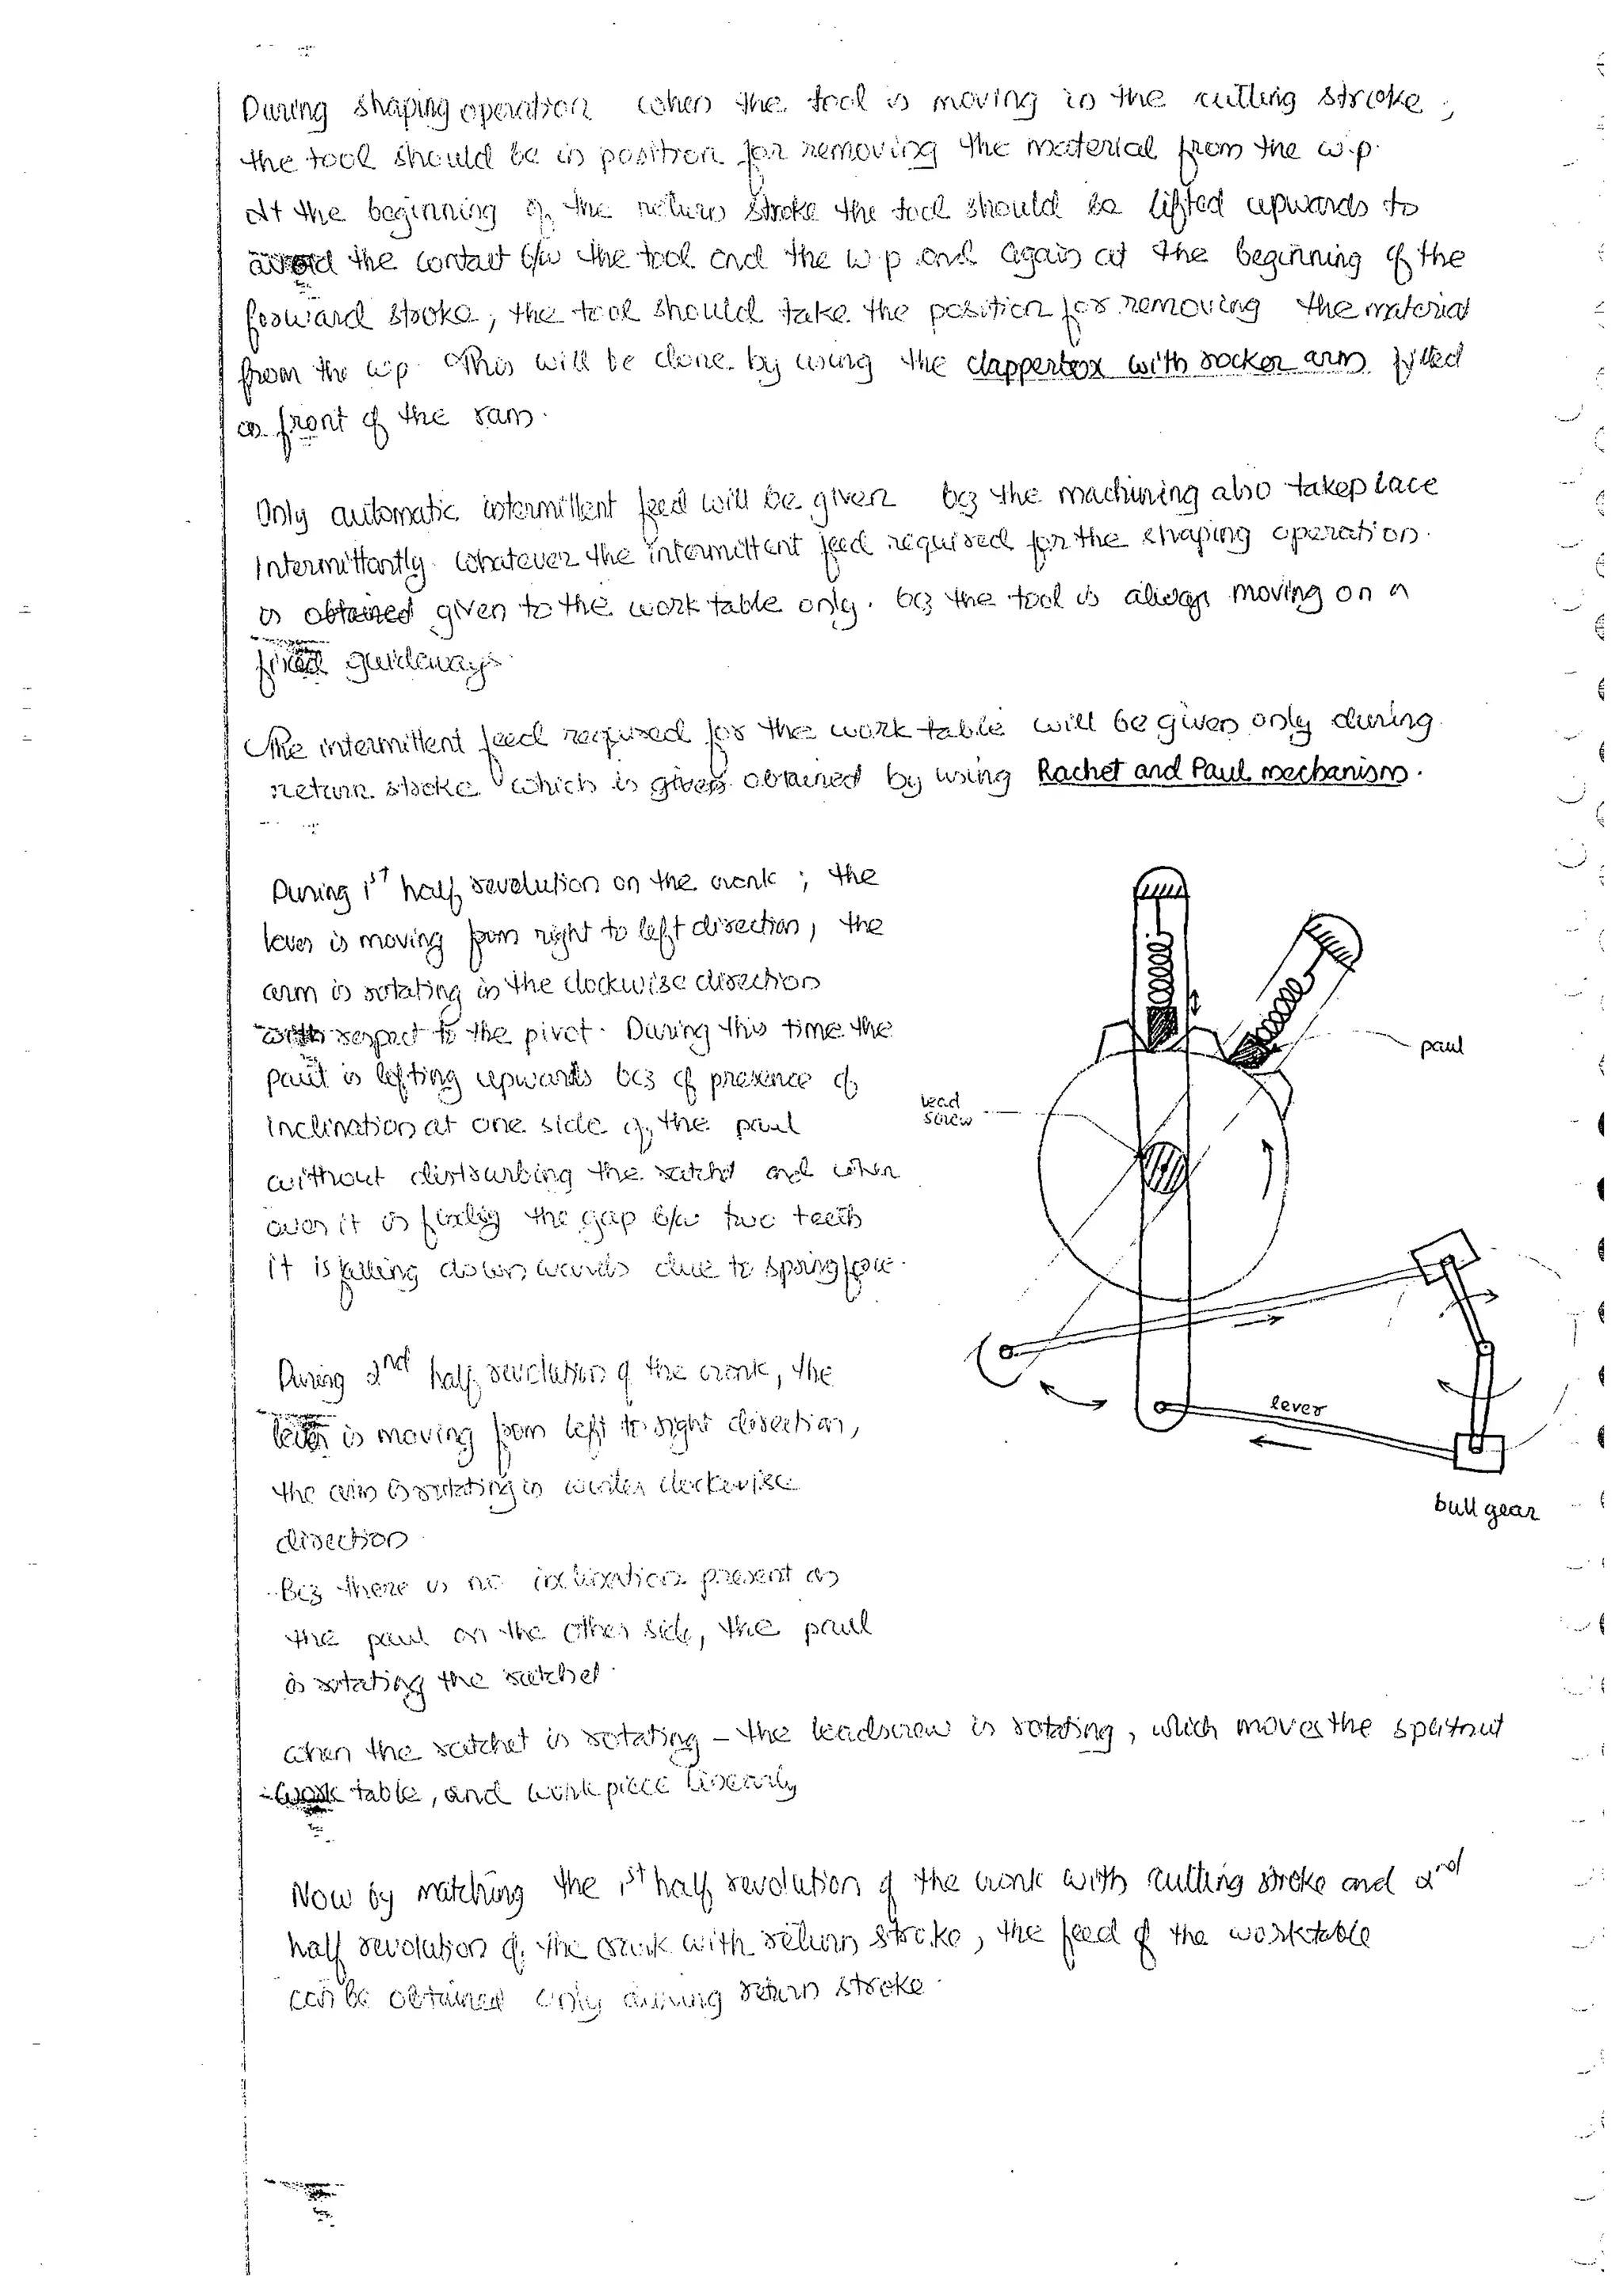 During shaping operation when the tool is moving in the cutting stroke ;
the tool should be in position for removing the material from the w.p.
At the beginning of the return stroke the tool should be lifted upwards to
avoid the contact b/w the tool and the w.p and again at the beginning of the
forward stroke, the tool should take the position for removing the material
from the w.p. This will be done by using the clapperbox with rocker arm fitted
in front of the ram.
Only automatic intermittent feed will be given bcz the machining also takeplace
Intermittantly. Whatever the intermittent feed required for the shaping operation
is obtained given to the work table only. bcz the tool is always moving on a
fixed guideways.
The intermittent feed required for the work table will be given only during
return stroke which is given obtained by using Rachet and Paul mechanism.
During 1st half revolution on the crank ; the
lever is moving from right to left direction, the
arm is rotating in the clockwise direction
with respect to the pivot. During this time the
paul is lifting upwards bcz of presence of
inclination at one side of the paul
without distsurbing the ratchet and when
ever it is finding the gap b/w two teeth
it is falling downwards due to spring force.
During 2nd half revolution of the crank, the
lever is moving from left to right direction,
the arm is rotating in counter clockwise
direction
Bcz there is no inclination present on
the paul on the other side, the paul
is rotating the ratchet.
When the ratchet is rotating – the leadscrew is rotating, which moves the splitnut
work table, and workpiece linearly
Now by matching the 1st half revolution of the crank with cutting stroke and 2nd
half revolution of the crank with return stroke, the feed of the worktable
can be obtained only during return stroke.
paul
lead
screw
lever
bull gear